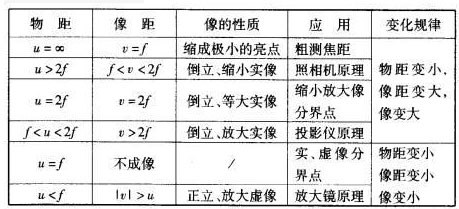 物 距 像 距 像的性质 应 用 变化规律
u=∞ v=f 缩成极小的亮点 粗测焦距
u>2f f<v<2f 倒立、缩小实像 照相机原理
u=2f v=2f 倒立、等大实像 缩小放大像分界点
f<u<2f v>2f 倒立、放大实像 投影仪原理
物距变小,
像距变大,
像变大
u=f 不成像 / 实、虚像分界点
u<f |v|>u 正立、放大虚像 放大镜原理
物距变小
像距变小
像变小